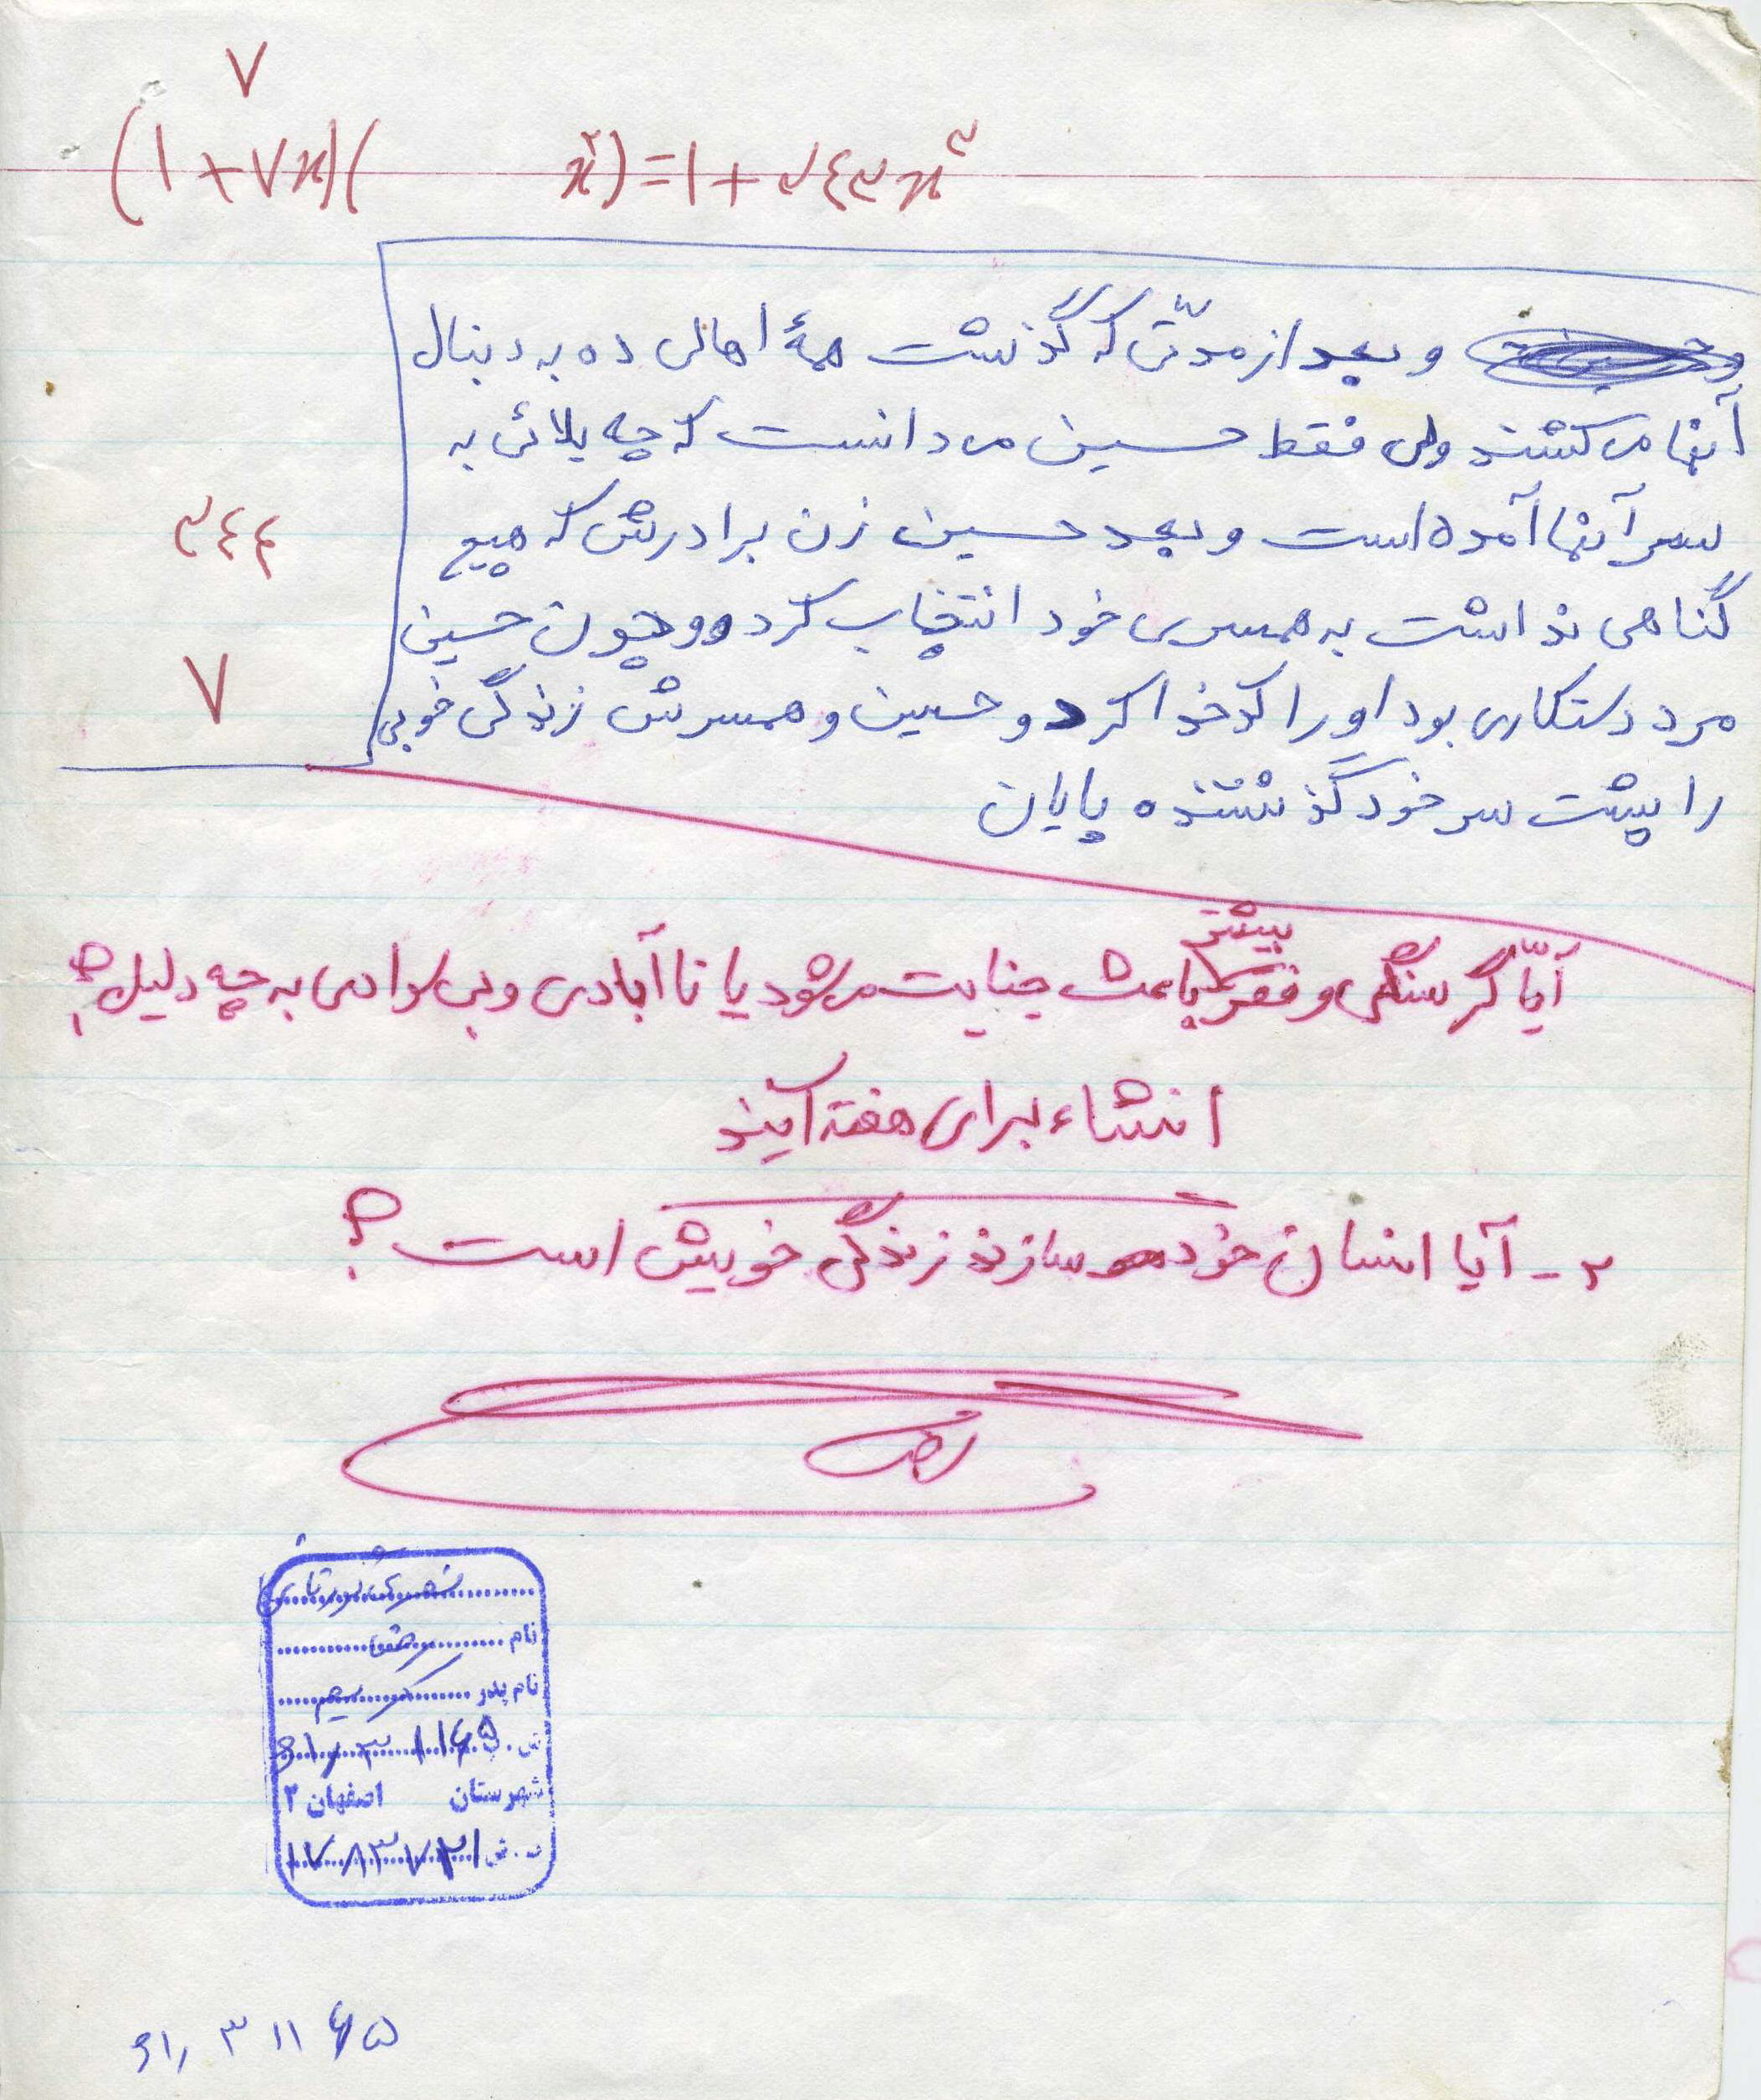 ۷
(۱+۷x)(    x²)=۱+۳۴۳x³
و بعد از مدّتی که گذشت همهٔ اهالی ده به دنبال
آنها می گشتند ولی فقط حسین می دانست که چه بلائی به
سر آنها آمده است و بعد حسین زن برادرش که هیچ
گناهی نداشت به همسری خود انتخاب کرد و چون حسین
مرد درستکاری بود او را کدخدا کرد و حسین و همسرش زندگی خوبی
را پشت سر خود گذشتند ه پایان
۳۴۳
۷
آیّا گرسنگی و فقر بیشتر باعث جنایت می شود یا نا آبادی و بی سوادی به چه دلیل؟
انشاء برای هفته آیند
۲- آیا انسان خود سازند زندگی خویش است؟
نام
نام پدر کریم
ش.
شهرستان اصفهان ۲